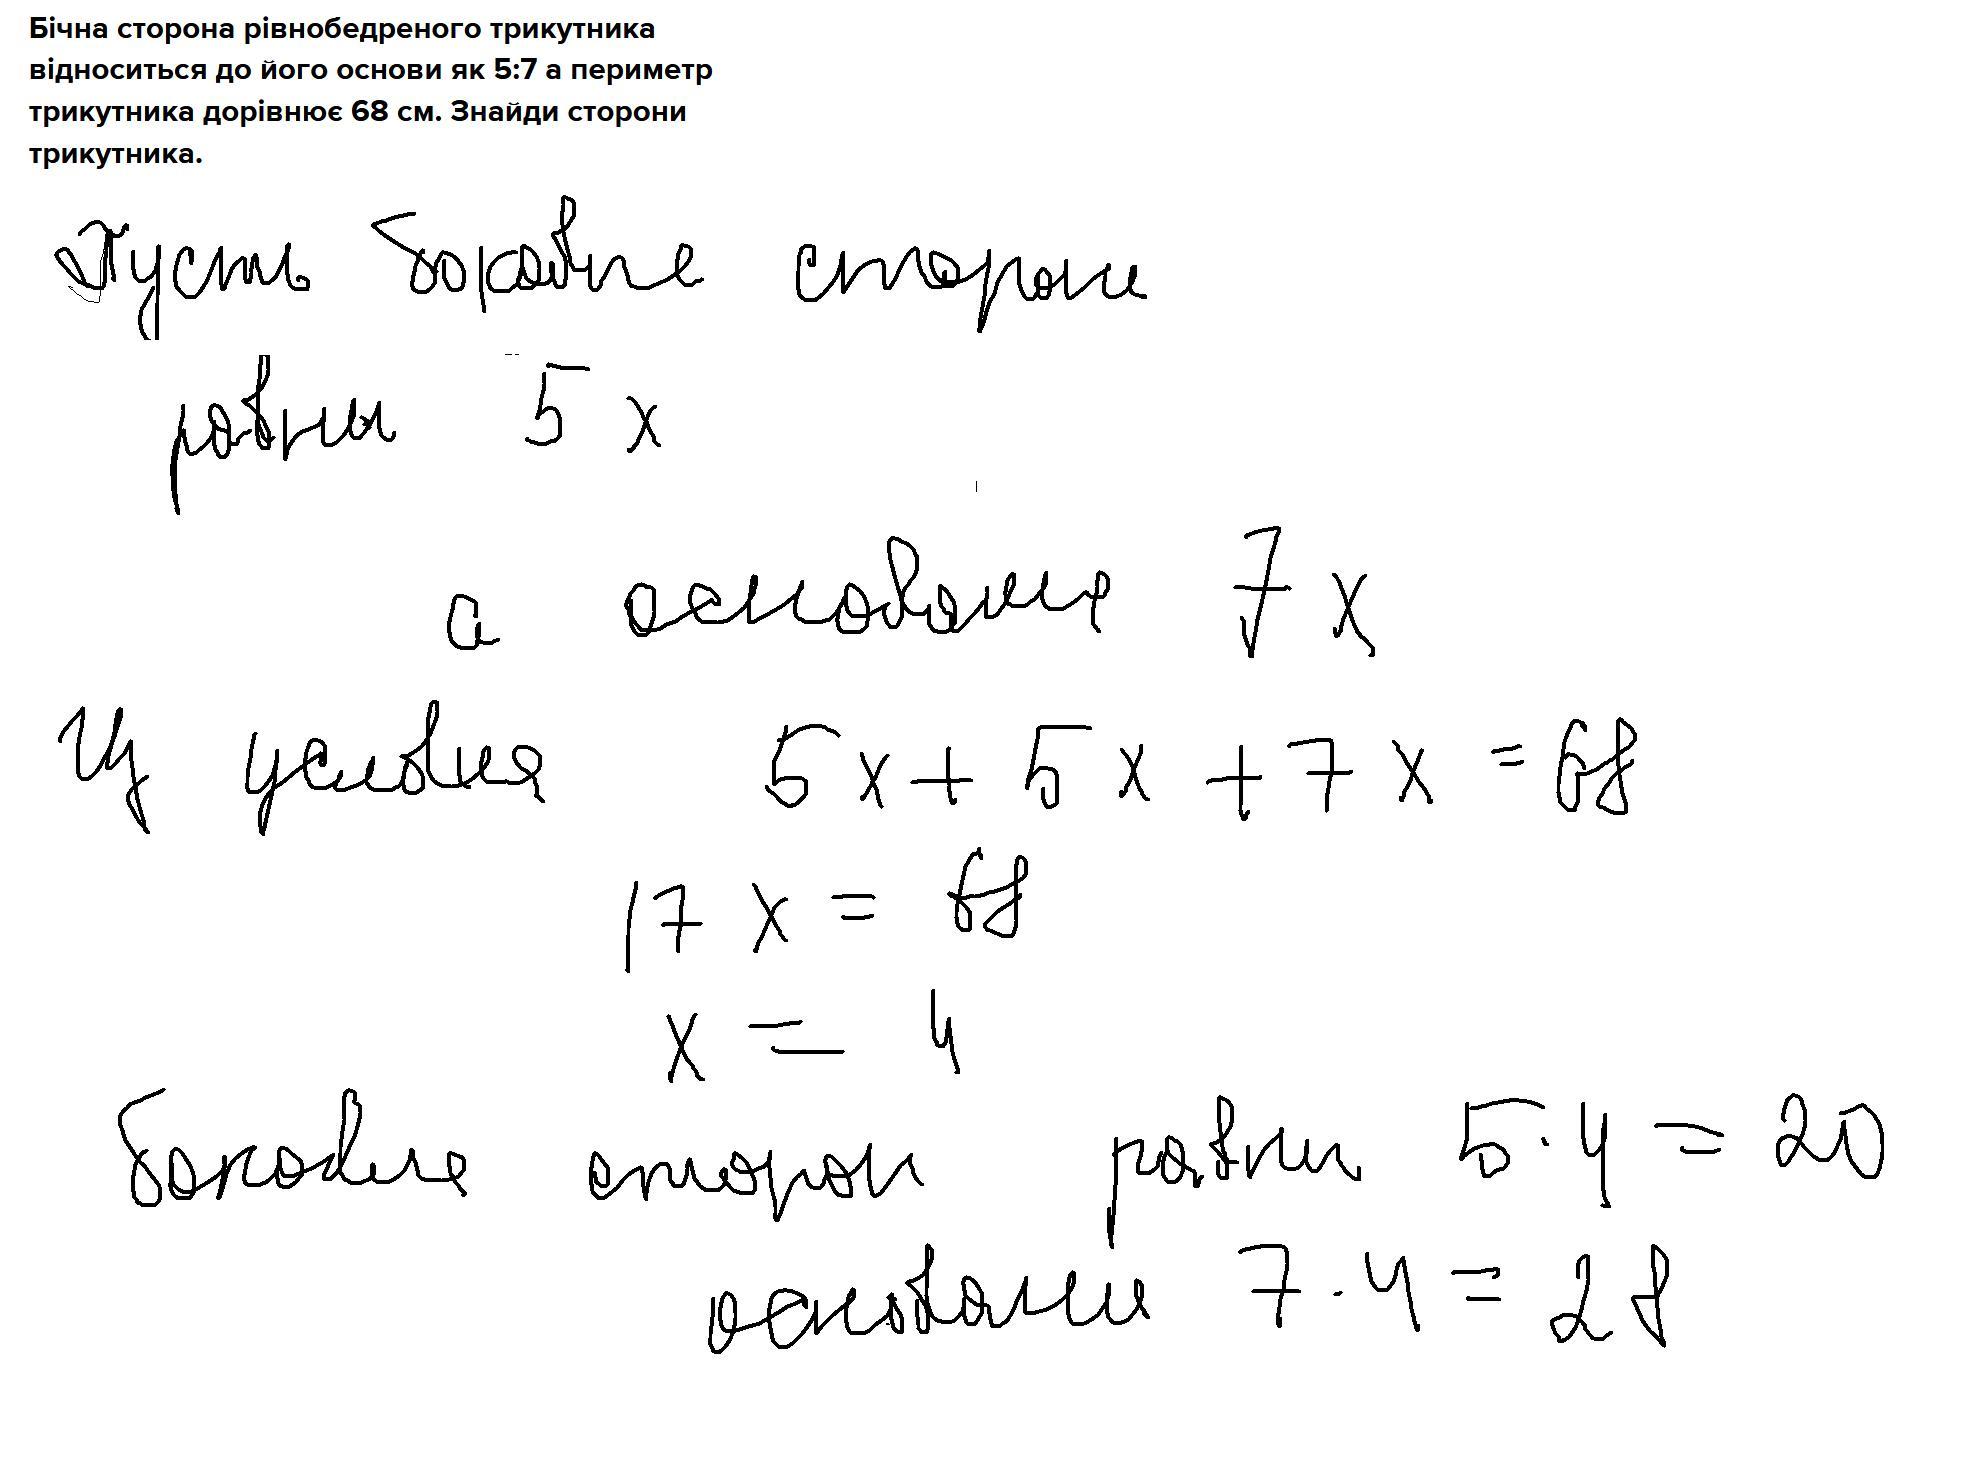 Бічна сторона рівнобедреного трикутника
відноситься до його основи як 5:7 а периметр
трикутника дорівнює 68 см. Знайди сторони
трикутника.
Пусть боковые стороны
равны 5 x
а основание 7 x
Из условия 5 x + 5 x + 7 x = 68
17 x = 68
x = 4
боковые сторон равны 5 · 4 = 20
основани 7 · 4 = 28